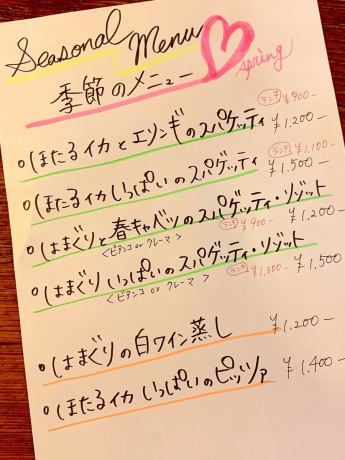 Seasonal Menu
季節のメニュー
spring
ランチ ¥900-
○ほたるイカとエリンギのスパゲッティ ¥1.200-
ランチ ¥1.100-
○ほたるイカいっぱいのスパゲッティ ¥1.500-
○はまぐりと春キャベツのスパゲッティ・リゾット ¥1.200-
<ビアンコ or クレーマ> ランチ ¥900-
○はまぐりいっぱいのスパゲッティ・リゾット ¥1.500-
<ビアンコ or クレーマ> ランチ ¥1.300-
○はまぐりの白ワイン蒸し ¥1.200-
○ほたるイカいっぱいのピッツァ ¥1.400-